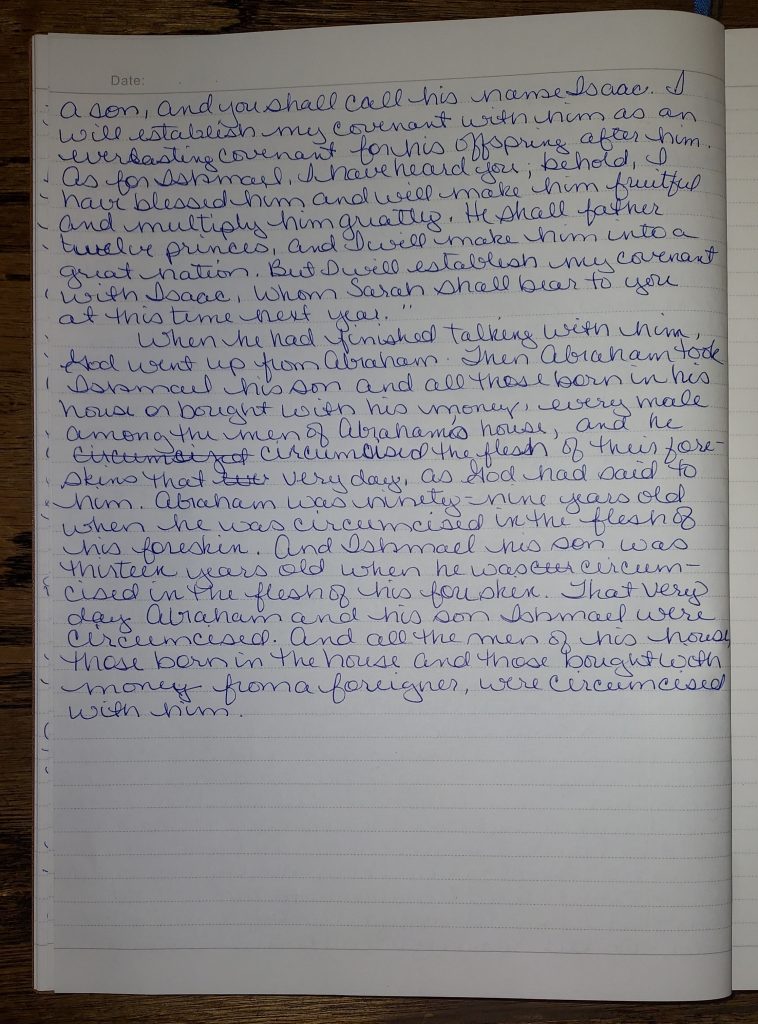 Date:
a son, and you shall call his name Isaac. I
will establish my covenant with him as an
everlasting covenant for his offspring after him.
As for Ishmael, I have heard you; behold, I
have blessed him and will make him fruitful
and multiply him greatly. He shall father
twelve princes, and I will make him into a
great nation. But I will establish my covenant
with Isaac, whom Sarah shall bear to you
at this time next year."
When he had finished talking with him,
God went up from Abraham. Then Abraham took
Ishmael his son and all those born in his
house or bought with his money, every male
among the men of Abraham's house, and he
circumcized circumcised the flesh of their fore-
skins that very day, as God had said to
him. Abraham was ninety-nine years old
when he was circumcised in the flesh of
his foreskin. And Ishmael his son was
thirteen years old when he was circum-
cised in the flesh of his foreskin. That very
day Abraham and his son Ishmael were
circumcised. And all the men of his house,
those born in the house and those bought with
money from a foreigner, were circumcised
with him.